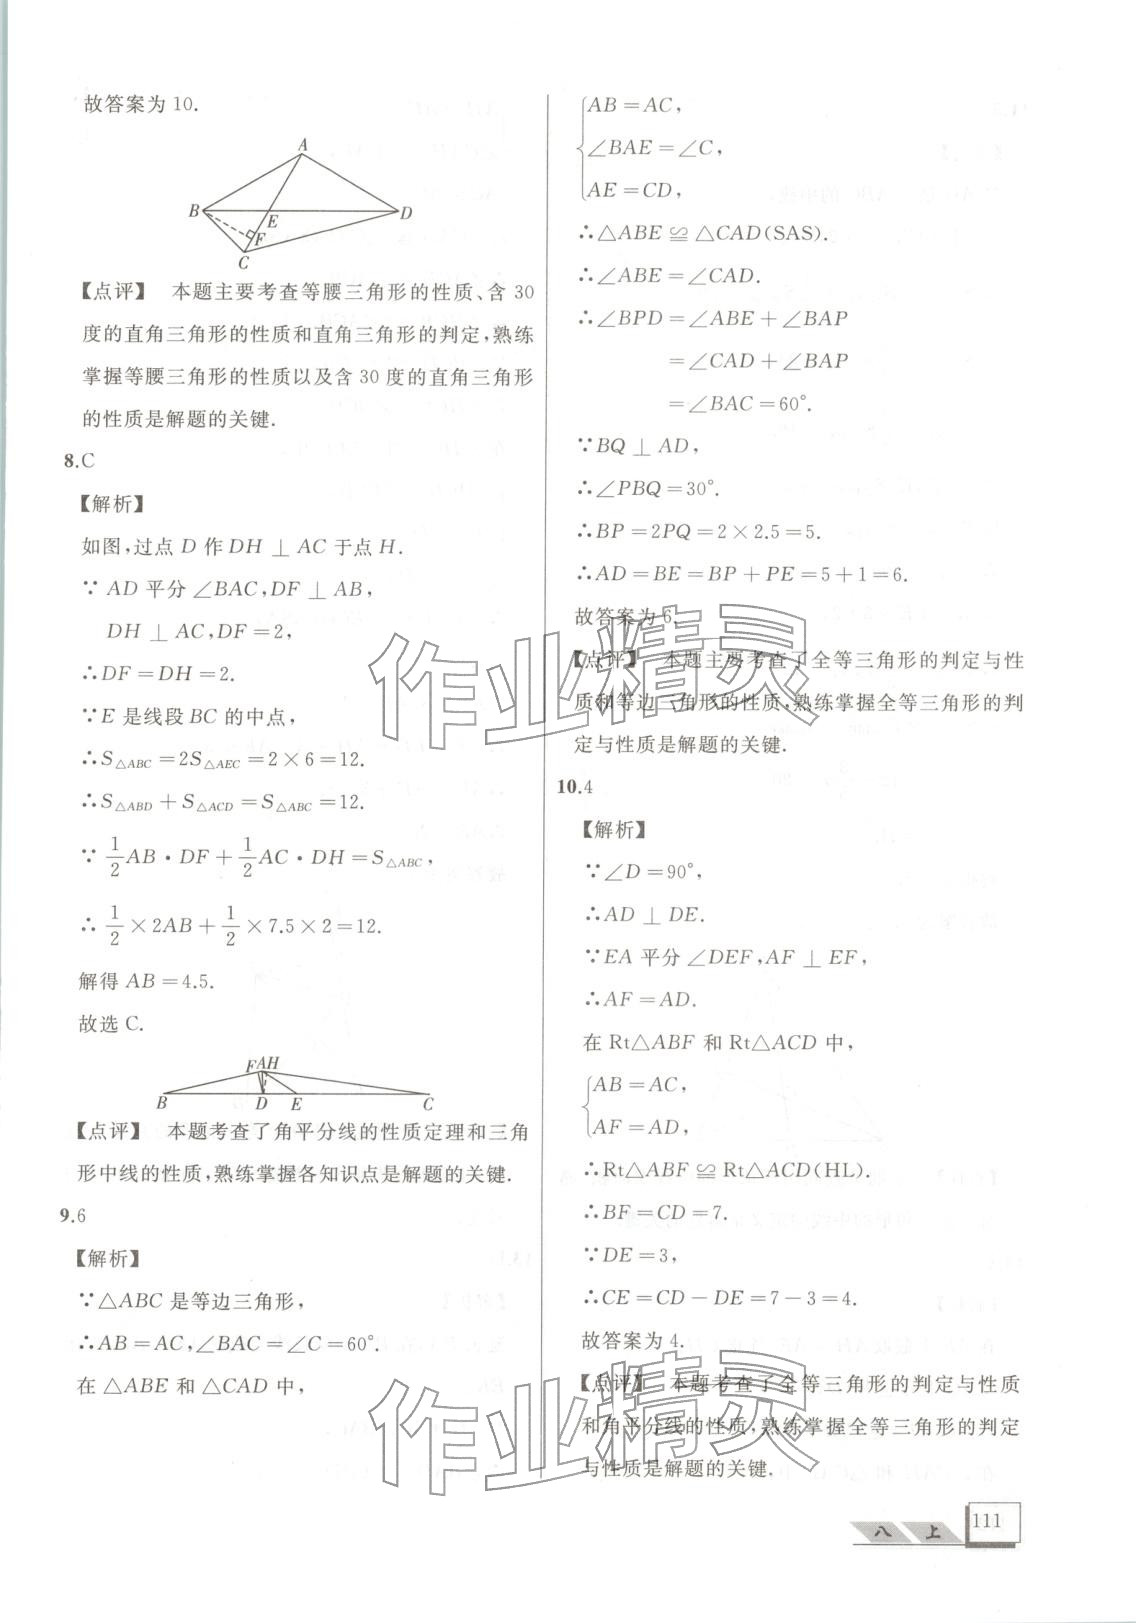 故答案为 10.
A
B
E
D
F
C
【点评】 本题主要考查等腰三角形的性质、含 30
度的直角三角形的性质和直角三角形的判定,熟练
掌握等腰三角形的性质以及含 30 度的直角三角形
的性质是解题的关键.
8.C
【解析】
如图,过点 D 作 DH ⊥ AC 于点 H.
∵ AD 平分 ∠BAC,DF ⊥ AB,
DH ⊥ AC,DF=2,
∴DF=DH=2.
∵E 是线段 BC 的中点,
∴S△ABC=2S△AEC=2×6=12.
∴S△ABD+S△ACD=S△ABC=12.
∵ 1/2 AB·DF+1/2 AC·DH=S△ABC,
∴ 1/2×2AB+1/2×7.5×2=12.
解得 AB=4.5.
故选 C.
FAH
B D E C
【点评】 本题考查了角平分线的性质定理和三角
形中线的性质,熟练掌握各知识点是解题的关键.
9.6
【解析】
∵△ABC 是等边三角形,
∴AB=AC,∠BAC=∠C=60°.
在 △ABE 和 △CAD 中,
AB=AC,
∠BAE=∠C,
AE=CD,
∴△ABE ≌ △CAD(SAS).
∴∠ABE=∠CAD.
∴∠BPD=∠ABE+∠BAP
=∠CAD+∠BAP
=∠BAC=60°.
∵BQ ⊥ AD,
∴∠PBQ=30°.
∴BP=2PQ=2×2.5=5.
∴AD=BE=BP+PE=5+1=6.
故答案为 6.
【点评】 本题主要考查了全等三角形的判定与性
质和等边三角形的性质,熟练掌握全等三角形的判
定与性质是解题的关键.
10.4
【解析】
∵∠D=90°,
∴AD ⊥ DE.
∵EA 平分 ∠DEF,AF ⊥ EF,
∴AF=AD.
在 Rt△ABF 和 Rt△ACD 中,
AB=AC,
AF=AD,
∴Rt△ABF ≌ Rt△ACD(HL).
∴BF=CD=7.
∵DE=3,
∴CE=CD-DE=7-3=4.
故答案为 4.
【点评】 本题考查了全等三角形的判定与性质
和角平分线的性质,熟练掌握全等三角形的判定
与性质是解题的关键.
作业精灵
作业精灵
八 上 111